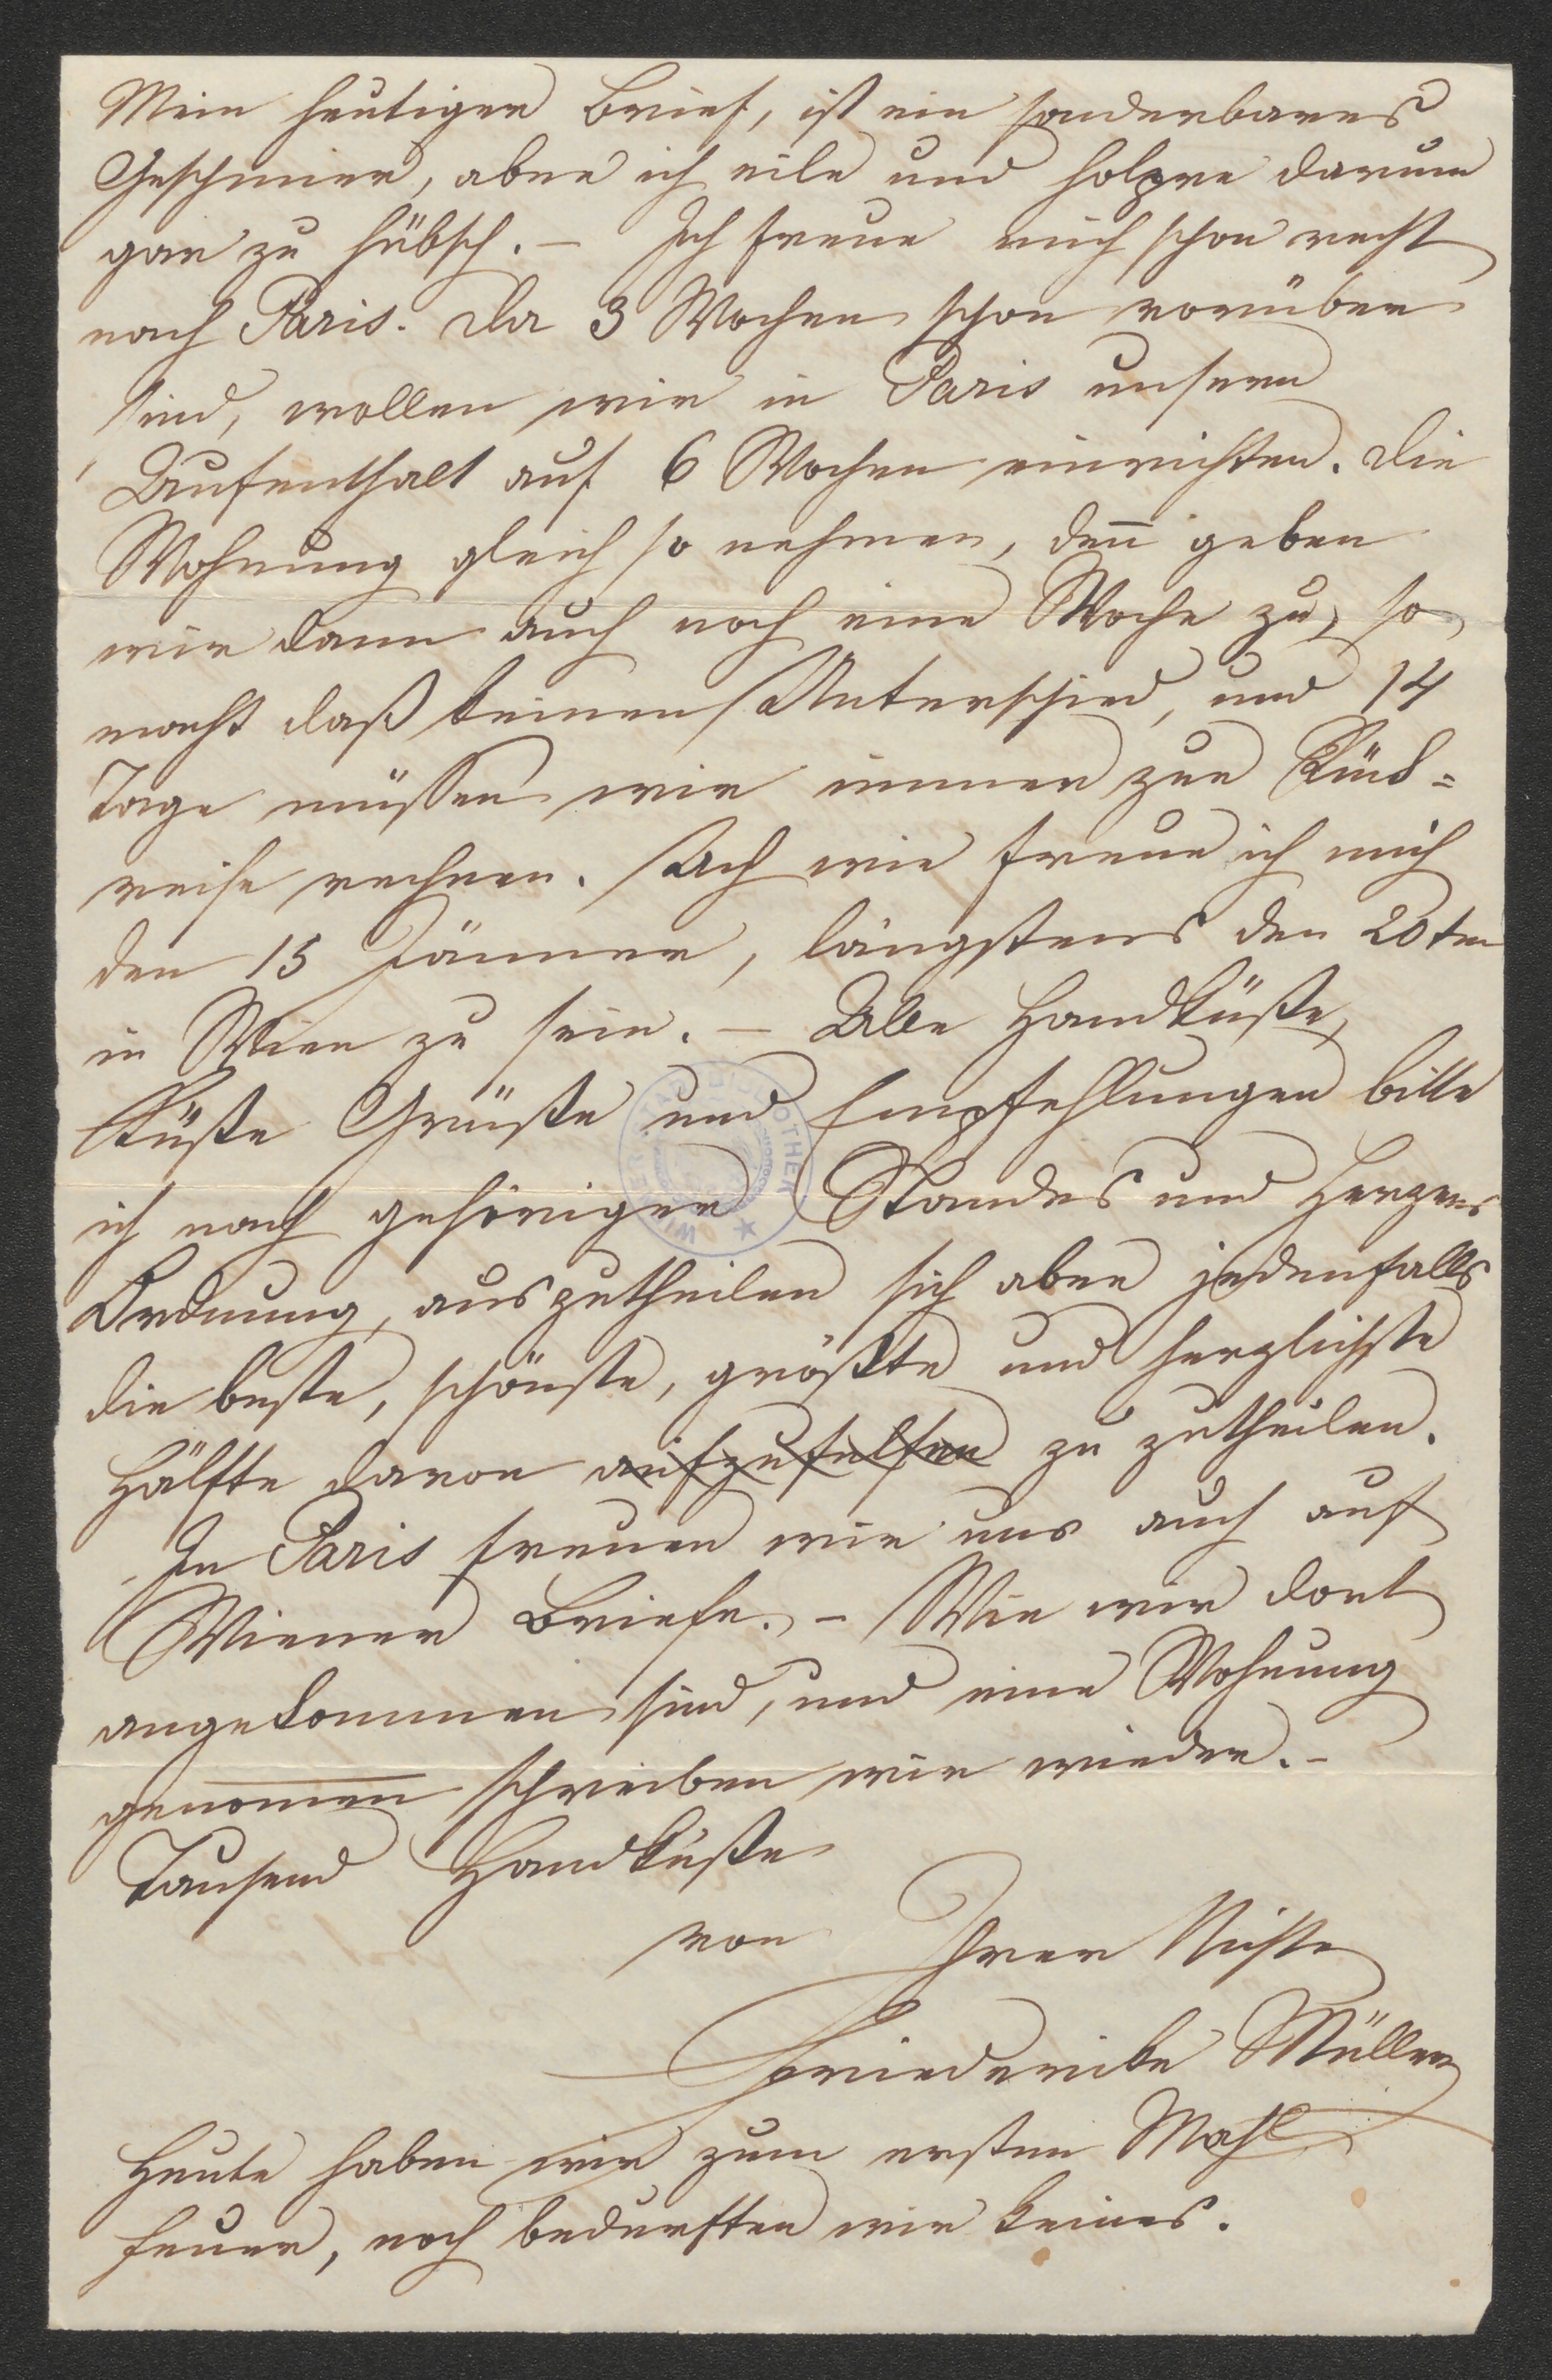 Mein heutiger Brief, ist ein sonderbares
Geschmier, aber ich eile und holpre darum
gar zu hübsch. – Ich freue mich schon recht
nach Paris. Da 3 Wochen schon vorüber
sind, wollen wir in Paris unsern
Aufenthalt auf 6 Wochen einrichten. Die
Wohnung gleich so nehmen, den̄ geben
wir dann auch noch eine Woche zu, so
macht daß keinen Unterschied, und 14
Tage müssen wir immer zur Rück=
reise rechnen. Ach wie freue ich mich
den 15 Jänner, längstens den 20ten
in Wien zu sein. – Alle Handküße,
Küße Grüße und Empfehlungen bitte
ich nach gehöriger Standes und Herzens
Ordnung, auszutheilen sich aber jedenfalls
die beste, schönste, größte und herzlichste
Hälfte davon zu zutheilen.
In Paris freuen wir uns auch auf
Wiener Briefe. – Wie wir dort
angekommen sind, und eine Wohnung
genom̄en schreiben wir wieder. –
Tausend Handküße
von Ihrer Nichte
Friederike Müller
Heute haben wir zum ersten Mahl
Feuer, noch bedurften wir keines.